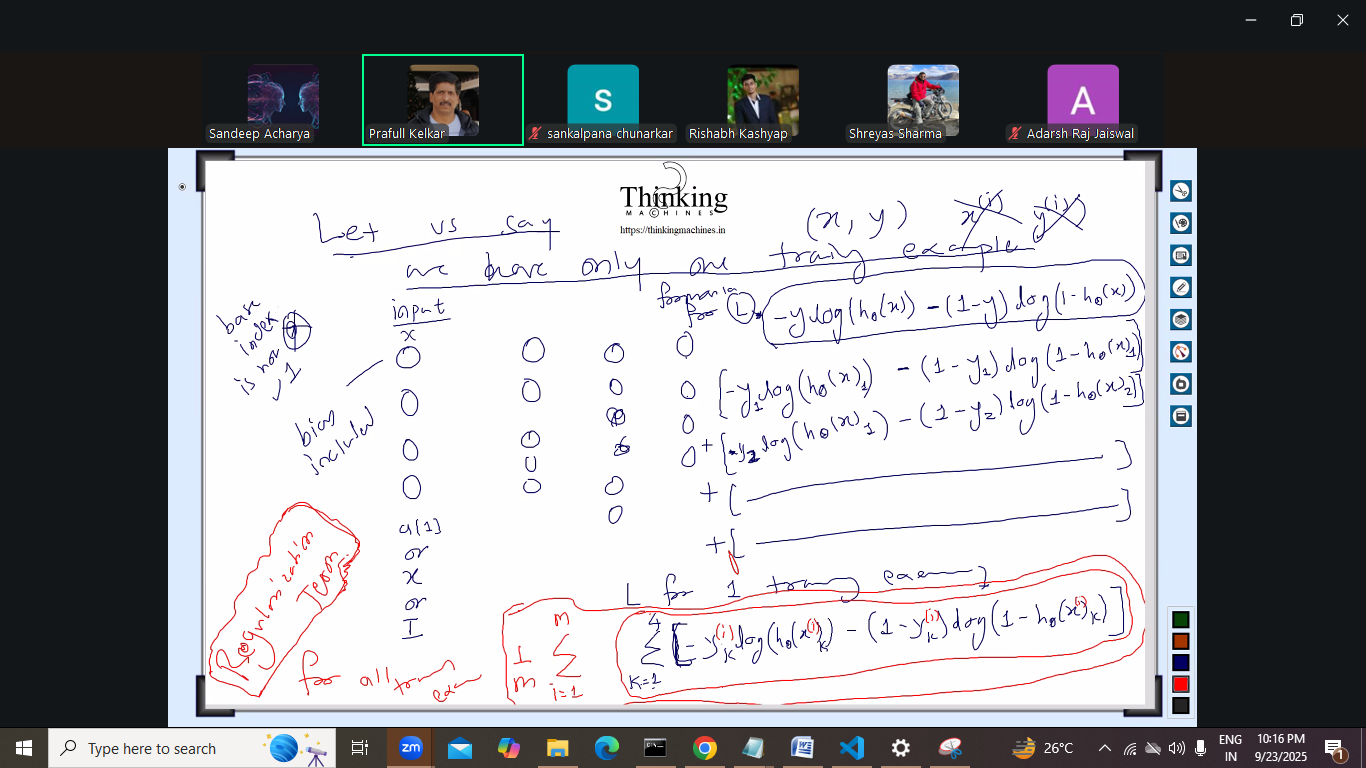 Sandeep Acharya
Prafull Kelkar
sankalpana chunarkar
Rishabh Kashyap
Shreyas Sharma
Adarsh Raj Jaiswal
S
A
Thinking
MACHINES
https://thinkingmachines.in
Let us say
(x, y) x^(i) y^(i)
we have only one example
base
index
is not
1
input
x
for L
-y log(hθ(x)) - (1-y) log(1-hθ(x))
[-y₁ log(hθ(x)₁) - (1-y₁) log(1-hθ(x)₁)]
+ [-y₂ log(hθ(x)₁) - (1-y₂) log(1-hθ(x)₂)]
+ [ ]
+ [ ]
bias
included
a[1]
or
x
or
I
Regularization
Term
L for 1
for all
1/m Σ i=1 m
Σ k=1 4 [-y_k^(i) log(hθ(x^(i))_k) - (1-y_k^(i)) log(1-hθ(x^(i))_k)]
Type here to search
zm
26°C
ENG
IN
10:16 PM
9/23/2025
1